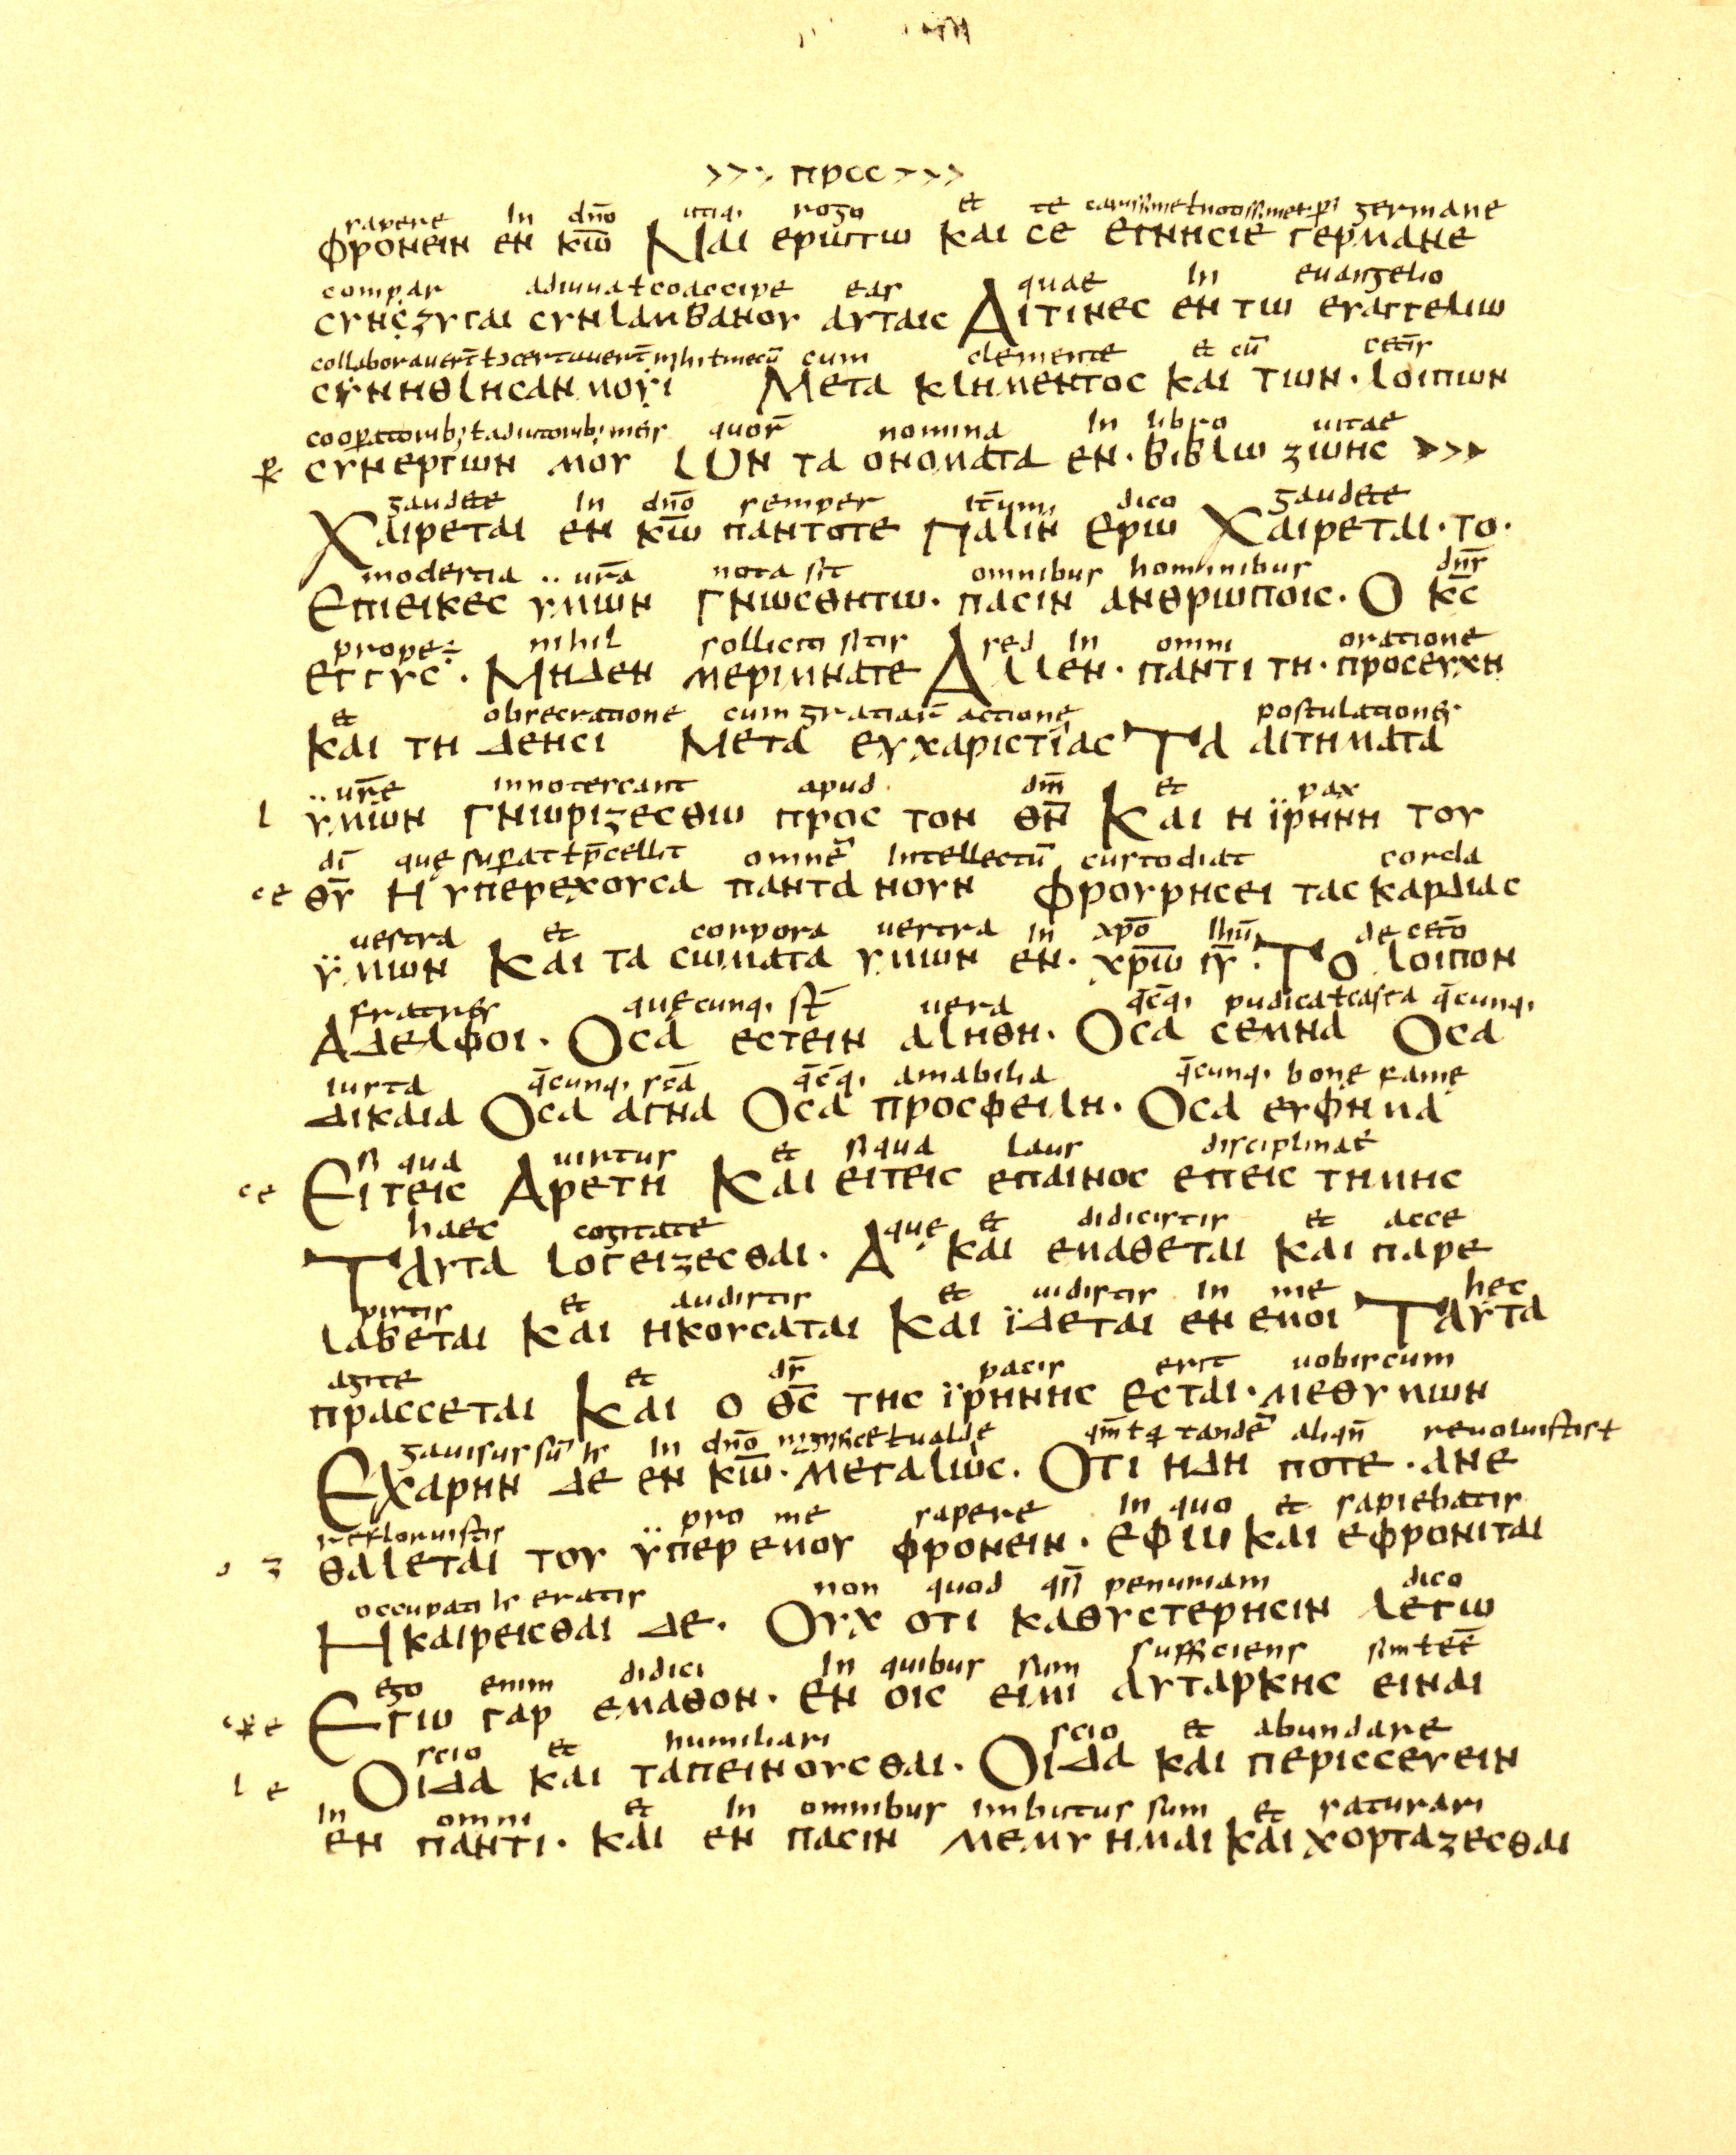 προς
sapere In dn̄o utiq; rogo et te germane
φρονειν εν κ̅ω̅ Ναι ερωτω και σε εγνησιε γερμανε
compar adiuua ł coaccipe eas quae In euangelio
συνζυγαι συνλαμβανου αυταις Αιτινες εν τω ευαγγελιω
cum clemente et cū cet̄is
συνηθλησαν μοι Μετα κλημεντος και των· λοιπων
quor̄ nomina In libro uitae
συνεργων μου ωΝ τα ονοματα εν· βιβλω ζωης
gaudete In dn̄o semper It̄um dico gaudete
Χαιρεται εν κ̅ω̅ παντοτε Παλιν ερω Χαιρεται· το·
modestia ·· ur̄a nota sit omnibus hominibus dn̄s
Επιεικες υμων Γνωσθητω· πασιν ανθρωποις· Ο κ̅ς̅
prope÷ nihil solliciti sitis sed In omni oratione
εγγυς· Μηδεν μεριμνατε Αλλεν· παντι τη· προσευχη
et obsecratione cum gratiar̄ actione postulationes
και τη δεησι Μετα ευχαριστιας Τα αιτηματα
·· ur̄e Innotescant apud dm̄ et pax
l υμων Γνωριζεσθω προς τον θ̅ν̅ Και η ϊρηνη του
dī quę supat ł p̄cellit omnē Intellectū custodiat corda
ce θ̅υ̅ Η υπερεχουσα παντα νουν φρουρησει τας καρδιας
uestra et corpora uestra In xp̄o Ihū de cet̄o
ϋμων Και τα σωματα υμων εν· χ̅ρ̅ω̅ ι̅υ̅· Το λοιπον
fratres quęcunq; st̄ uera q̄cq; pudica ł casta q̄cunq;
Αδελφοι· Οσα εστειν αληθη· Οσα σεμνα Οσα
Iusta q̄cunq; sc̄a q̄cq; amabilia q̄cunq; bonę famę
δικαια Οσα αγνα Οσα προσφειλη· Οσα ευφημα
si qua uirtus et siqua laus disciplinae
ce Ειτεις Αρετη Και ειτεις επαινος επεις τημης
haec cogitate quę et didicistis et acce
Ταυτα λογειζεσθαι· Α και εμαθεται και παρε
pistis et audistis et uidistis In me hęc
λαβεται Και ηκουσαται Και ϊδεται εν εμοι Ταυτα
agite et ds̄ pacis erit uobiscum
πρασσεται Και ο θ̅ς̅ της ϊρηνης εσται· μεθυμων
gauisus sū In dn̄o tandē aliqn̄ reuoluistis ł
Εχαρην δε εν κ̅ω̅· μεγαλως· Οτι ηδη ποτε· ανε
refloruistis pro me sapere In quo et sapiebatis
θαλεται του ϋπερ εμου φρονειν· εφω και εφρονιται
occupati eratis non quod penuriam dico
Ηκαιρεισθαι δε· Ουχ οτι καθυστερησιν λεγω
ego enim didici In quibus sum sufficiens sim ł eē
Εγω γαρ εμαθον· εν οις ειμι αυταρκης ειναι
scio et humiliari scio et abundare
l e Οιδα και ταπεινουσθαι· Οιδα και περισσευειν
In omni et In omnibus Imbutus sum et saturari
εν παντι· και εν πασιν μεμυημαι και χορταζεσθαι